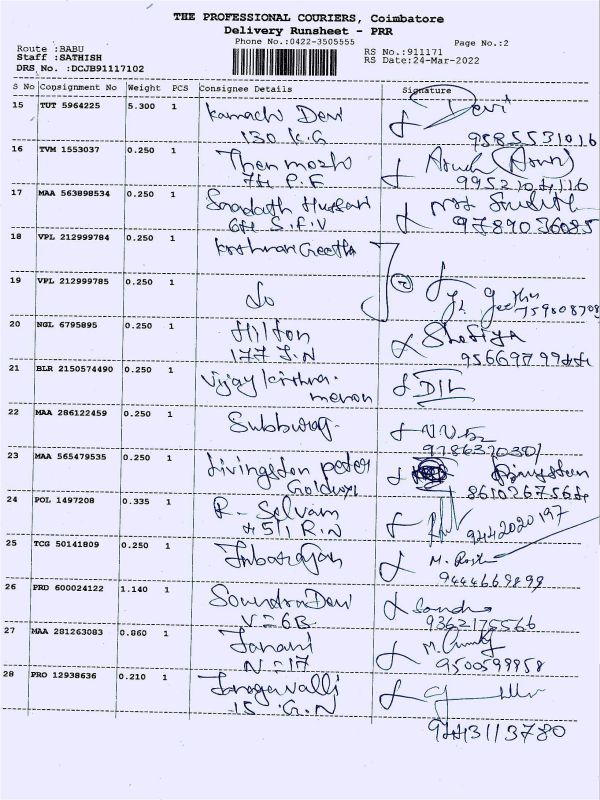 THE PROFESSIONAL COURIERS, Coimbatore
Delivery Runsheet - PRR
Phone No.:0422-3505555
Page No.:2
Route :BABU
Staff :SATHISH
DRS No. :DCJB91117102
RS No.:911171
RS Date:24-Mar-2022
S No Consignment No Weight PCS Consignee Details Signature
15 TUT 5964225 5.300 1 Kamachi Devi Devi
130 K.G 9585531016
16 TVM 1553037 0.250 1
74 P.F 9952104116
17 MAA 563898534 0.250 1
64 S.F.V 9789036085
18 VPL 212999784 0.250 1 Krishnan Geetha
19 VPL 212999785 0.250 1 Do
Geetha
20 NGL 6795895 0.250 1 Hilton Shefiya
177 J.N 9566979944
21 BLR 2150574490 0.250 1 Vijay Krishna DIL
menon
22 MAA 286122459 0.250 1 Subburaj
23 MAA 565479535 0.250 1 Livingston peter
8610267564
24 POL 1497208 0.335 1 R. Selvam
451 R.N 9442020197
25 TCG 50141809 0.250 1
9444669899
26 PRD 600024122 1.140 1 Soundra Devi
V-6B 9362175566
27 MAA 281263083 0.860 1 Janani
N-17 9500599958
28 PRO 12938636 0.210 1
15 G.N
9443113780